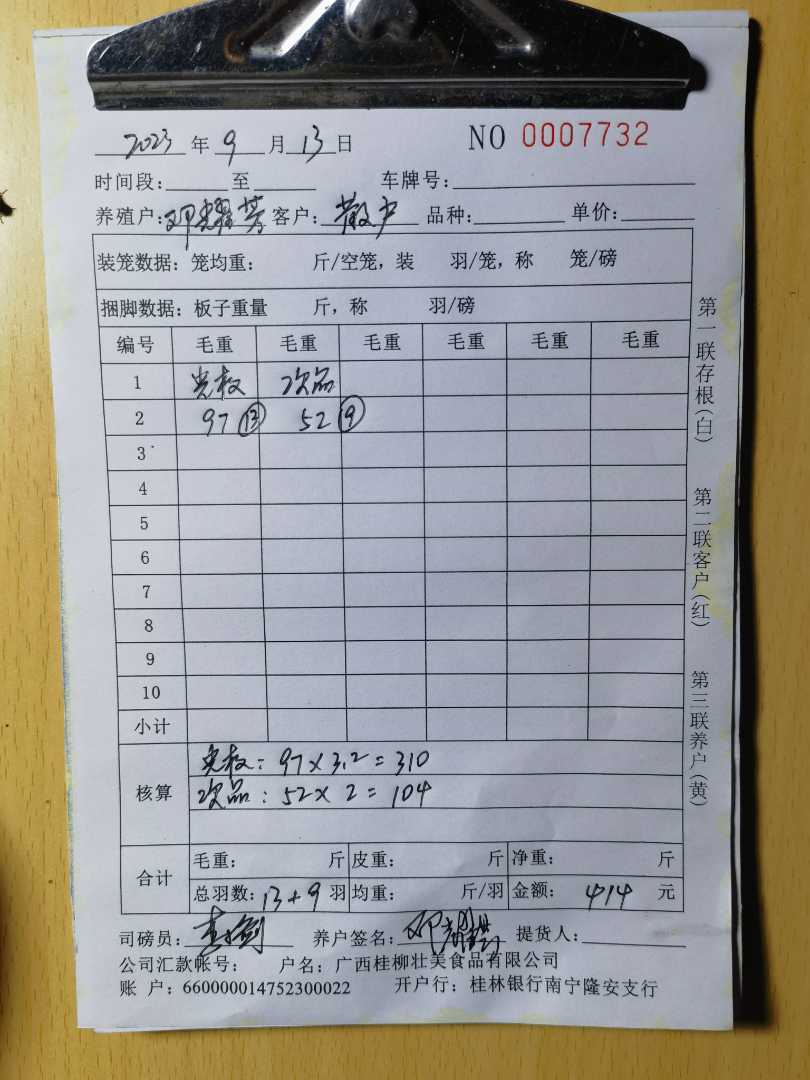 2023 年 9 月 13 日 NO 0007732
时间段: 至 车牌号:
养殖户: 邓耀芳 客户: 散户 品种: 单价:
装笼数据: 笼均重: 斤/空笼, 装 羽/笼, 称 笼/磅
捆脚数据: 板子重量 斤, 称 羽/磅
编号 毛重 毛重 毛重 毛重 毛重 毛重
1 次品
2 97 13 52 9
3
4
5
6
7
8
9
10
小计
核算
: 97×3.2=310
次品: 52×2=104
合计
毛重: 斤 皮重: 斤 净重: 斤
总羽数: 13+9 羽 均重: 斤/羽 金额: 414 元
司磅员: 养户签名: 提货人:
公司汇款帐号: 户名: 广西桂柳壮美食品有限公司
账 户: 660000014752300022 开户行: 桂林银行南宁隆安支行
第一联存根(白) 第二联客户(红) 第三联养户(黄)